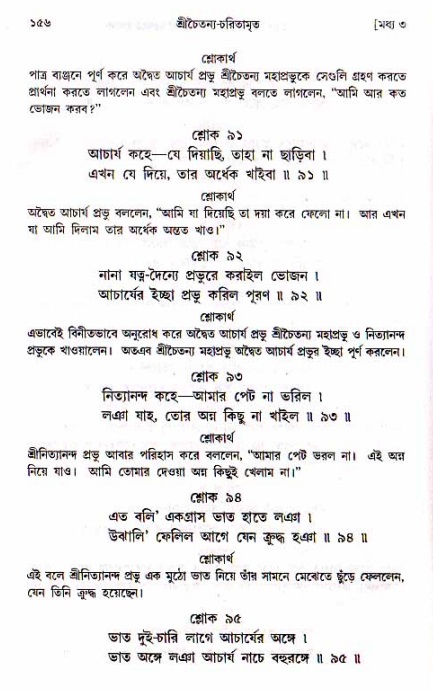 ১৫৬ শ্রীচৈতন্য-চরিতামৃত [মধ্য ৩
শ্লোকার্থ
পাত্র ব্যঞ্জনে পূর্ণ করে অদ্বৈত আচার্য প্রভু শ্রীচৈতন্য মহাপ্রভুকে সেগুলি গ্রহণ করতে
প্রার্থনা করতে লাগলেন এবং শ্রীচৈতন্য মহাপ্রভু বলতে লাগলেন, “আমি আর কত
ভোজন করব?”
শ্লোক ৯১
আচার্য কহে—যে দিয়াছি, তাহা না ছাড়িবা ।
এখন যে দিয়ে, তার অর্ধেক খাইবা ॥ ৯১ ॥
শ্লোকার্থ
অদ্বৈত আচার্য প্রভু বললেন, “আমি যা দিয়েছি তা দয়া করে ফেলো না। আর এখন
যা আমি দিলাম তার অর্ধেক অন্তত খাও।”
শ্লোক ৯২
নানা যত্ন-দৈন্যে প্রভুরে করাইল ভোজন ।
আচার্যের ইচ্ছা প্রভু করিল পূরণ ॥ ৯২ ॥
শ্লোকার্থ
এভাবেই বিনীতভাবে অনুরোধ করে অদ্বৈত আচার্য প্রভু শ্রীচৈতন্য মহাপ্রভু ও নিত্যানন্দ
প্রভুকে খাওয়ালেন। অতএব শ্রীচৈতন্য মহাপ্রভু অদ্বৈত আচার্য প্রভুর ইচ্ছা পূর্ণ করলেন।
শ্লোক ৯৩
নিত্যানন্দ কহে—আমার পেট না ভরিল ।
লঞা যাহ, তোর অন্ন কিছু না খাইল ॥ ৯৩ ॥
শ্লোকার্থ
শ্রীনিত্যানন্দ প্রভু আবার পরিহাস করে বললেন, “আমার পেট ভরল না। এই অন্ন
নিয়ে যাও। আমি তোমার দেওয়া অন্ন কিছুই খেলাম না।”
শ্লোক ৯৪
এত বলি’ একগ্রাস ভাত হাতে লঞা ।
উঝালি’ ফেলিল আগে যেন ক্রুদ্ধ হঞা ॥ ৯৪ ॥
শ্লোকার্থ
এই বলে শ্রীনিত্যানন্দ প্রভু এক মুঠো ভাত নিয়ে তাঁর সামনে মেঝেতে ছুঁড়ে ফেললেন,
যেন তিনি ক্রুদ্ধ হয়েছেন।
শ্লোক ৯৫
ভাত দুই-চারি লাগে আচার্যের অঙ্গে ।
ভাত অঙ্গে লঞা আচার্য নাচে বহুরঙ্গে ॥ ৯৫ ॥